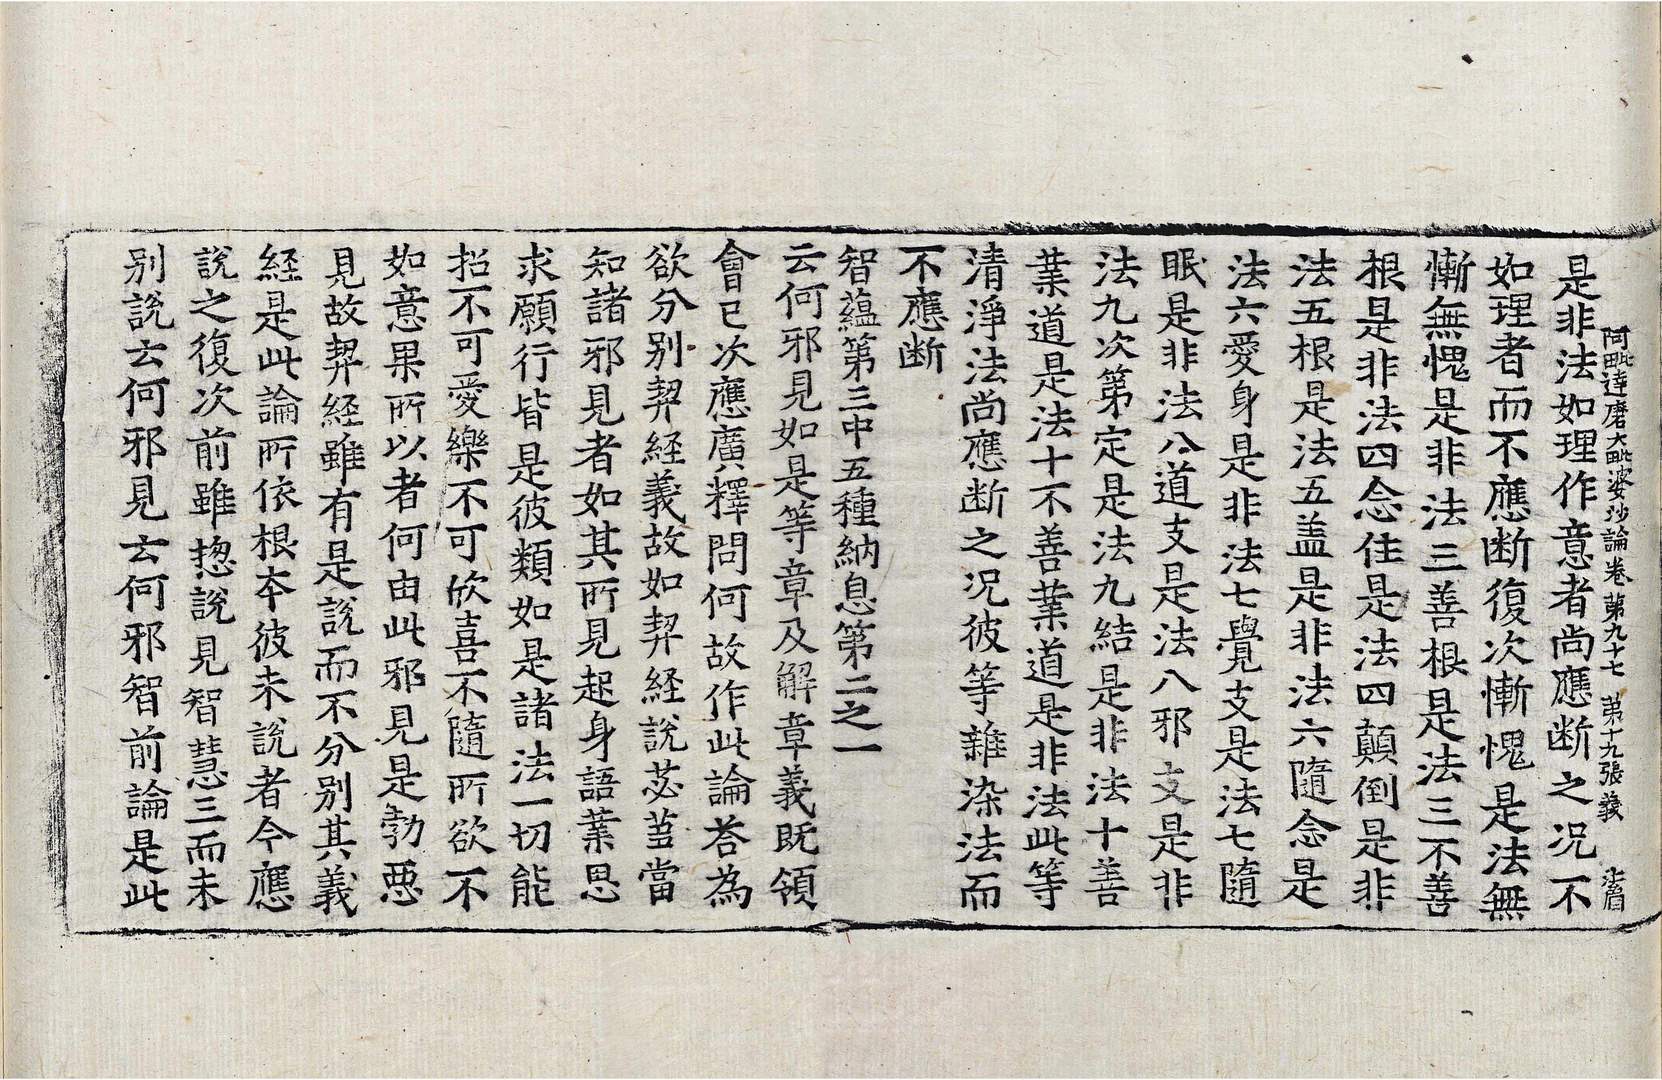 阿毗達磨大毗婆沙論卷第九十七　第十九張　義
是非法如理作意者尚應断之况不
如理者而不應断復次慚愧是法無
慚無愧是非法三善根是法三不善
根是非法四念住是法四顛倒是非
法五根是法五盖是非法六隨念是
法六愛身是非法七覺支是法七隨
眠是非法八道支是法八邪支是非
法九次第定是法九結是非法十善
業道是法十不善業道是非法此等
清淨法尚應断之况彼等雜染法而
不應断
智蘊第三中五種納息第二之一
云何邪見如是等章及解章義既領
會已次應廣釋問何故作此論荅為
欲分别契経義故如契経說苾芻當
知諸邪見者如其所見起身語業思
求願行皆是彼類如是諸法一切能
招不可愛樂不可欣喜不隨所欲不
如意果所以者何由此邪見是勃惡
見故契経雖有是說而不分别其義
経是此論所依根本彼未說者今應
說之復次前雖揔說見智慧三而未
别說云何邪見云何邪智前論是此